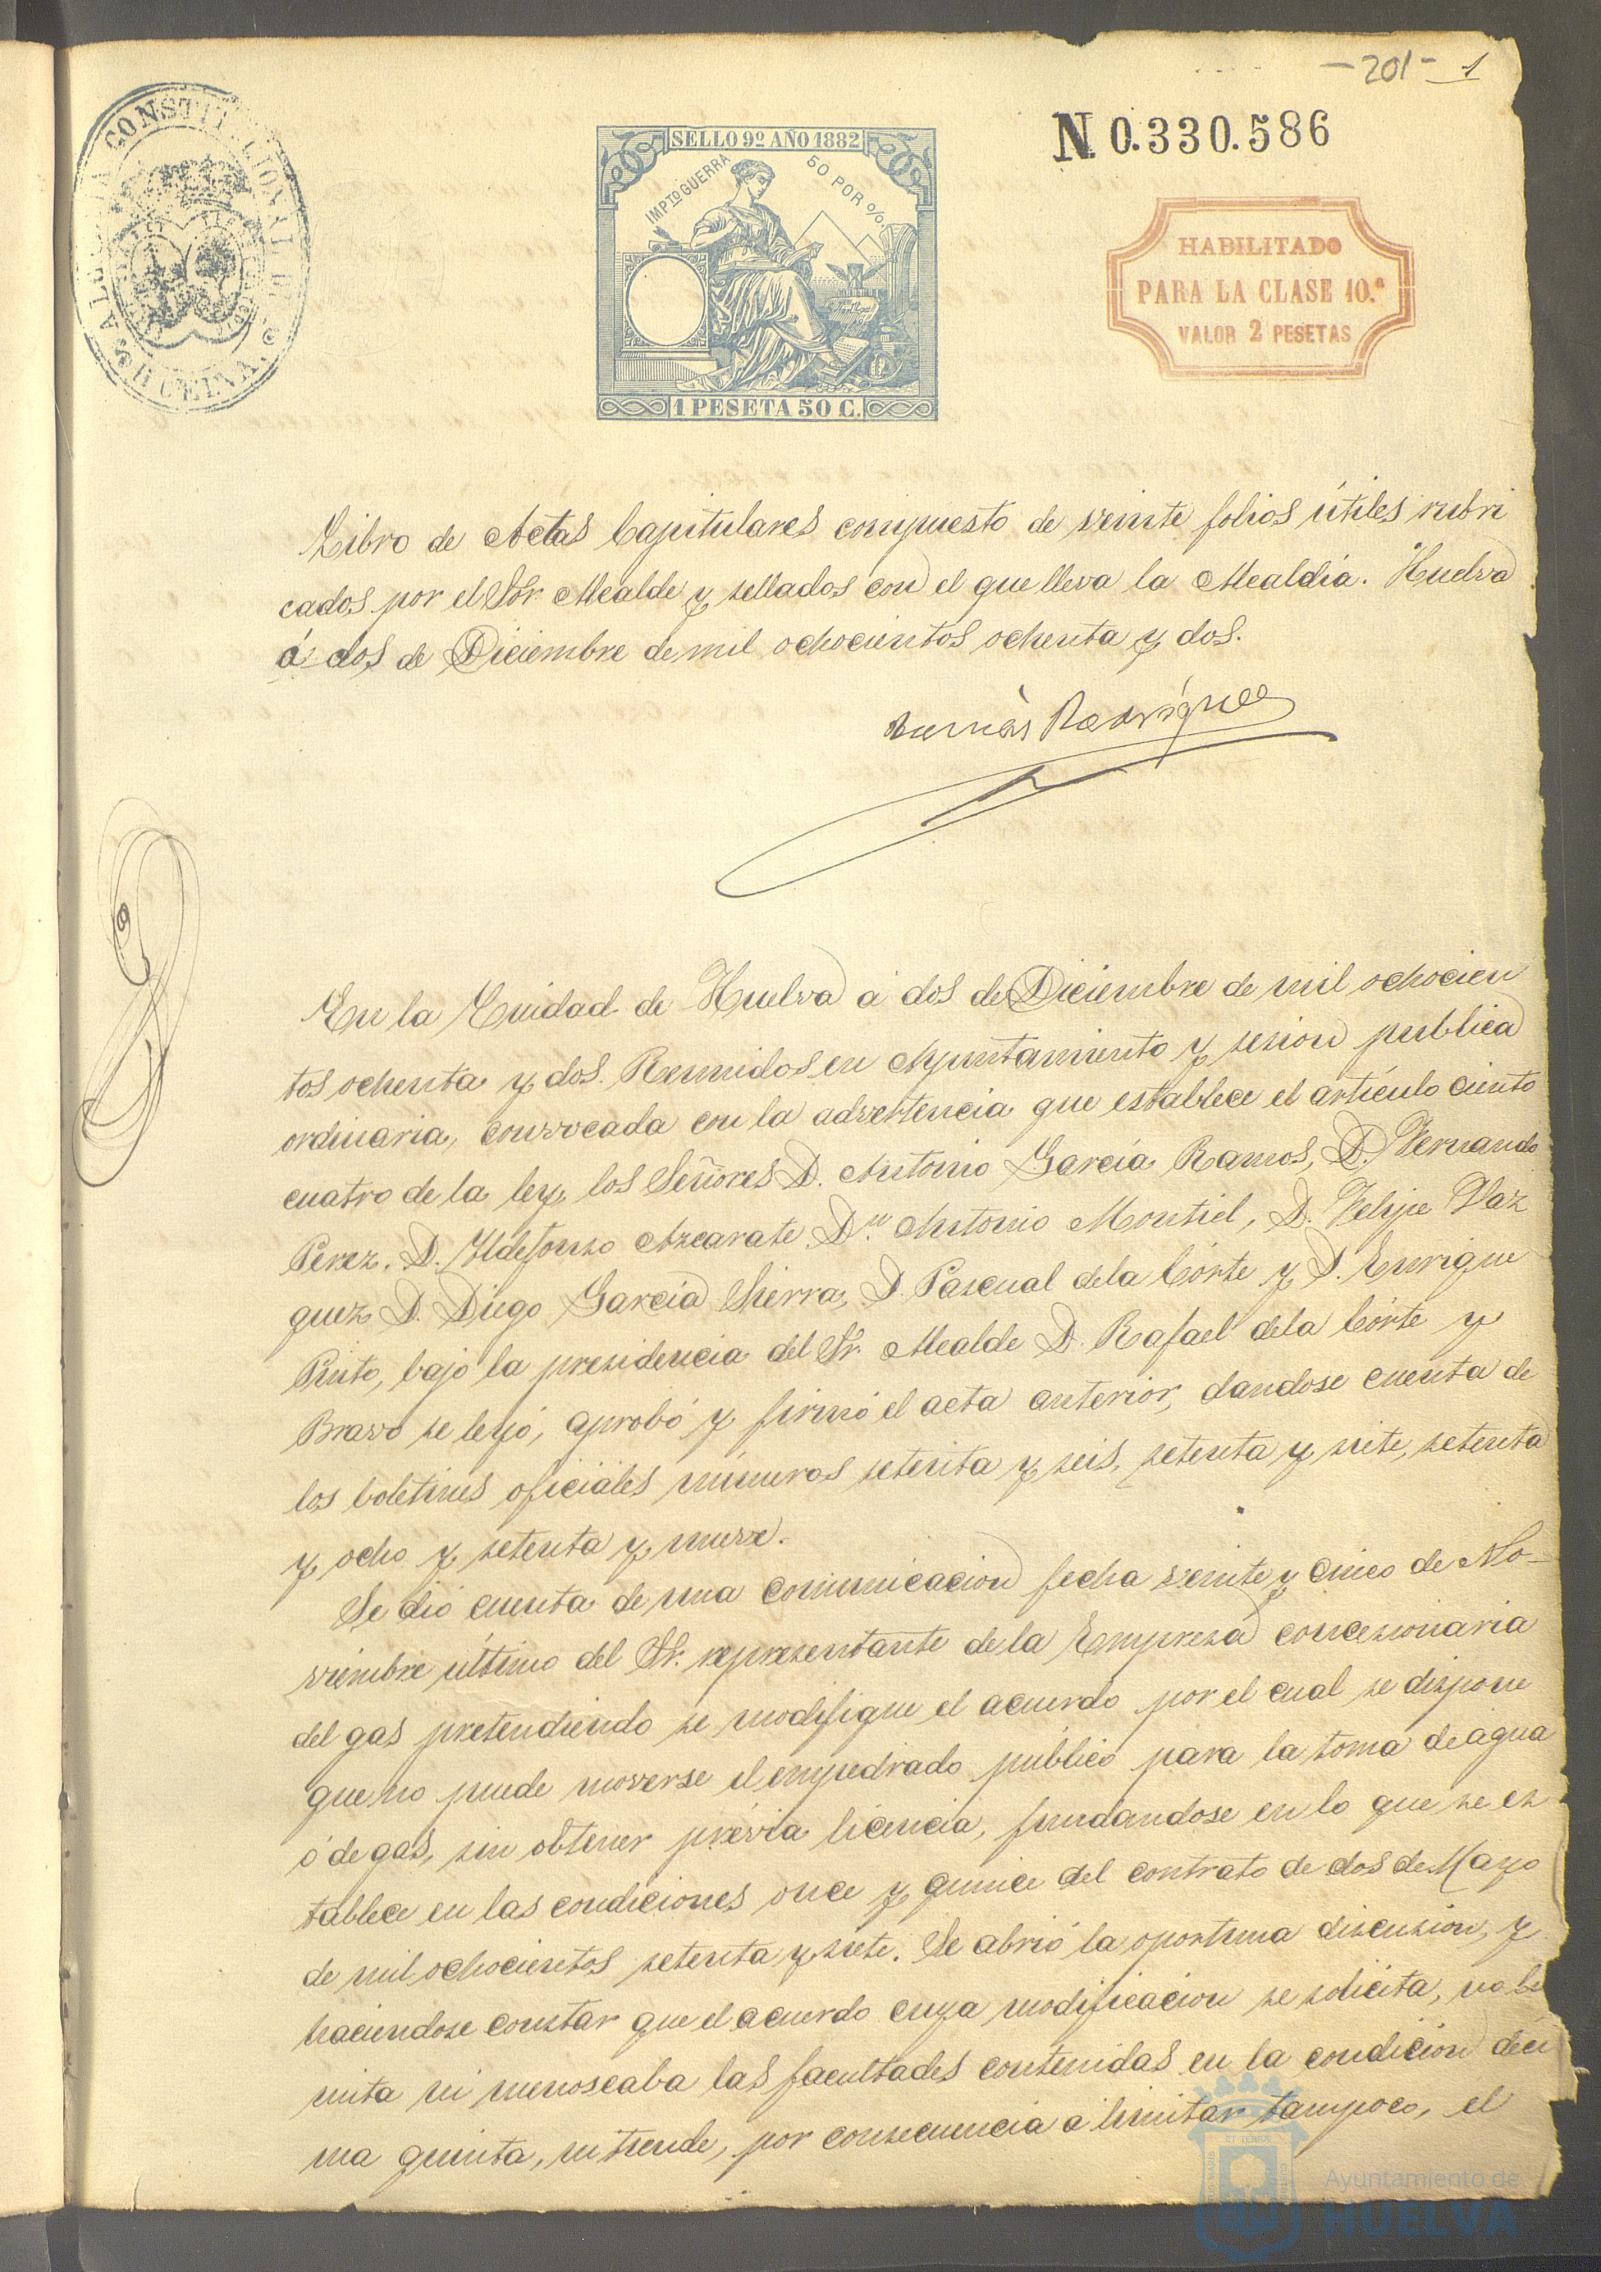 -201- 1
ALCALDIA CONSTITUCIONAL DE HUELVA
SELLO 9º AÑO 1882
IMPTO GUERRA 50 POR %
1 PESETA 50 C.
N 0.330.586
HABILITADO
PARA LA CLASE 10.ª
VALOR 2 PESETAS
Libro de Actas Capitulares compuesto de veinte folios útiles rubri
cados por el Sor Alcalde y sellados con el que lleva la Alcaldia. Huelva
á dos de Diciembre de mil ochocientos ochenta y dos.
Tomás Rodríguez
En la Ciudad de Huelva á dos de Diciembre de mil ochocien
tos ochenta y dos. Reunidos en Ayuntamiento y sesion publica
ordinaria, convocada con la advertencia que establece el artículo ciento
cuatro de la ley, los Señores D. Antonio García Ramos, D. Fernando
Perez. D. Yldefonso Azcarate D.n Antonio Montiel, D. Felipe Vaz
quez D. Diego García Sierra, D. Pascual de la Córte y D. Enrique
Pinto, bajo la presidencia del Sr. Alcalde D. Rafael de la Córte y
Bravo se leyó, aprobó y firmó el acta anterior, dandose cuenta de
los boletines oficiales números setenta y seis, setenta y siete, setenta
y ocho y setenta y nueve.
Se dió cuenta de una comunicacion fecha veinte y cinco de No-
viembre último del Sr. representante de la Empresa concesionaria
del gas pretendiendo se modifique el acuerdo por el cual se dispone
que no puede moverse el empedrado público para la toma de agua
ó de gas, sin obtener prévia licencia, fundandose en lo que se es
tablece en las condiciones once y quince del contrato de dos de Mayo
de mil ochocientos setenta y siete. Se abrió la oportuna discusion, y
haciendose constar que el acuerdo cuya modificacion se solicita, no li
mita ni menoscaba las facultades contenidas en la condición déci
ma quinta, ni tiende, por consecuencia á limitar tampoco, el
Ayuntamiento de
HUELVA